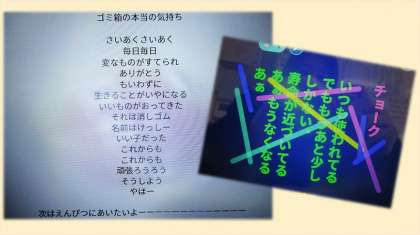 ゴミ箱の本当の気持ち
さいあくさいあく
毎日毎日
変なものがすてられ
ありがとう
もいわずに
生きることがいやになる
いいものがおってきた
それは消しゴム
名前はけっしー
いい子だった
これからも
これからも
頑張ろうろう
そうしよう
やほー
次はえんぴつにあいたいよーーーーーーーーーーーー
チョーク
いつも使われてる
でももうあと少し
しかない
寿命が近づいてる
ああもうなくなる
あぁ